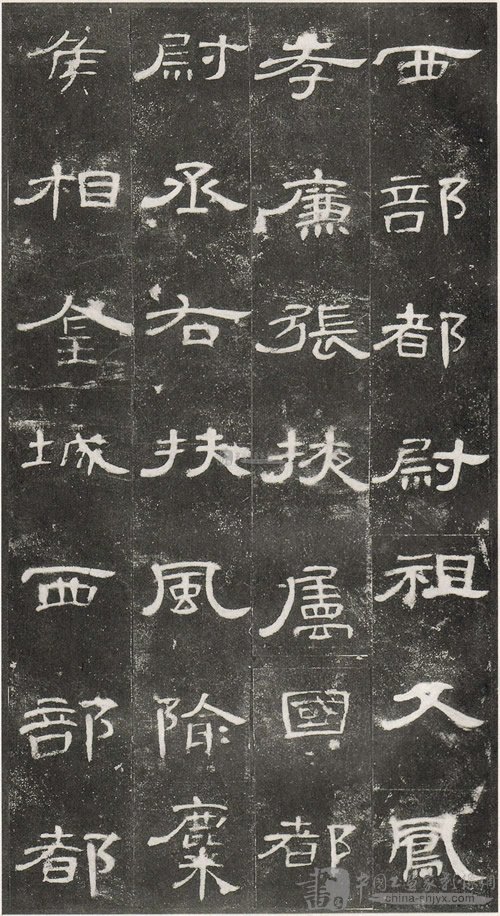 西部都尉祖父鳳
孝廉張掖屬國都
尉丞右扶風隃麋
矦相金城西部都
china-shjyx.com